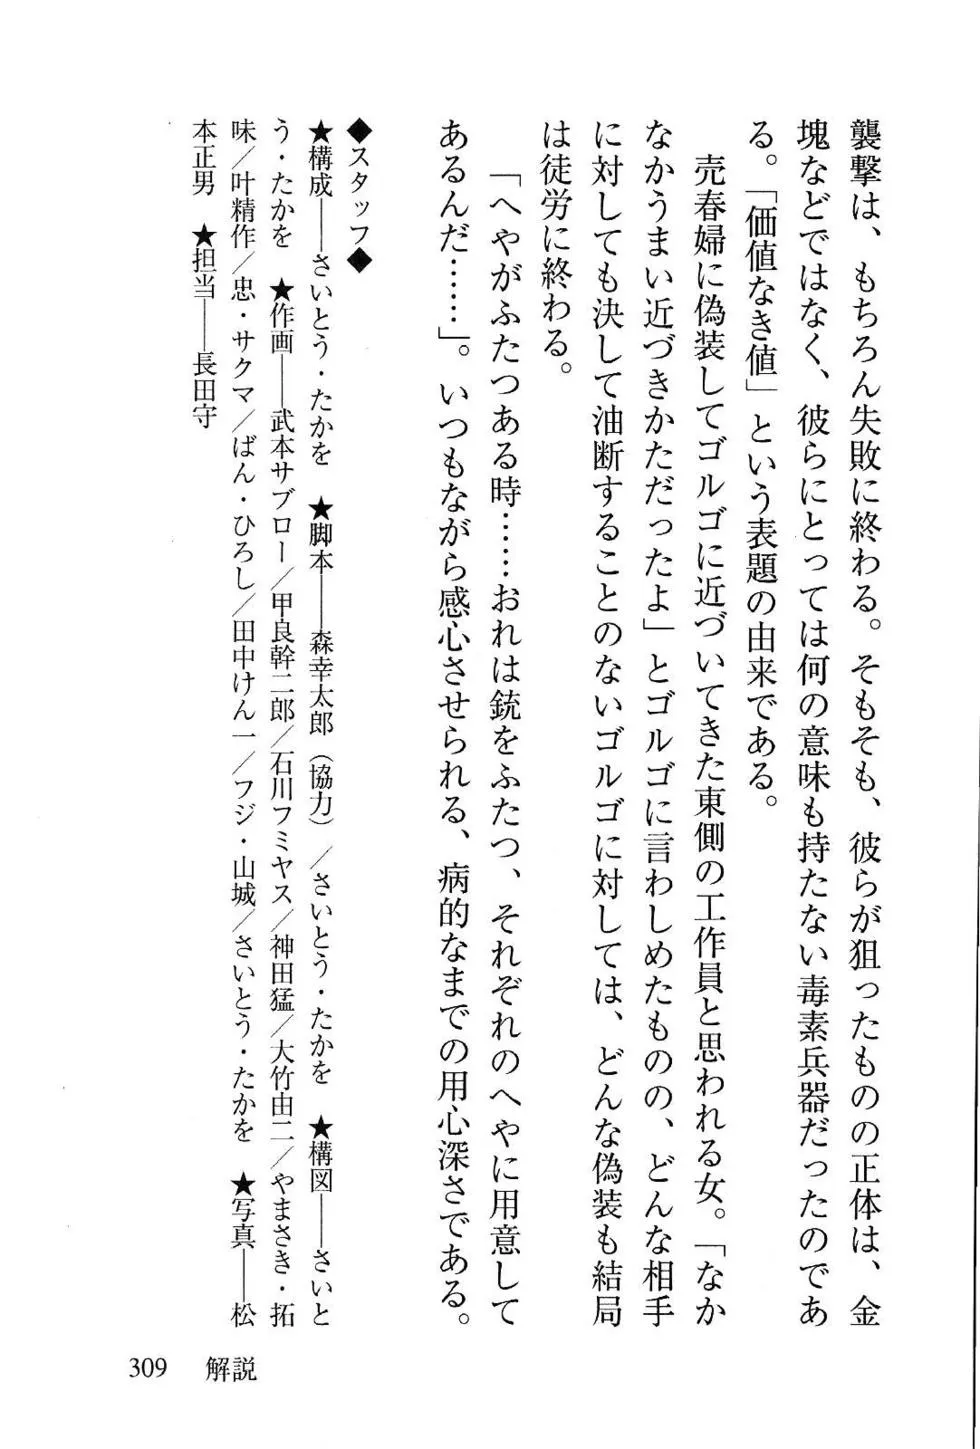 襲撃は、もちろん失敗に終わる。そもそも、彼らが狙ったものの正体は、金
塊などではなく、彼らにとっては何の意味も持たない毒素兵器だったのであ
る。「価値なき値」という表題の由来である。
売春婦に偽装してゴルゴに近づいてきた東側の工作員と思われる女。「なか
なかうまい近づきかただったよ」とゴルゴに言わしめたものの、どんな相手
に対しても決して油断することのないゴルゴに対しては、どんな偽装も結局
は徒労に終わる。
「へやがふたつある時……おれは銃をふたつ、それぞれのへやに用意して
あるんだ……」。いつもながら感心させられる、病的なまでの用心深さである。
◆スタッフ◆
★構成――さいとう・たかを　★脚本――森幸太郎（協力）／さいとう・たかを　★構図――さいと
う・たかを　★作画――武本サブロー／甲良幹二郎／石川フミヤス／神田猛／大竹由二／やまさき・拓
味／叶精作／忠・サクマ／ばん・ひろし／田中けん一／フジ・山城／さいとう・たかを　★写真――松
本正男　★担当――長田守
309　解説